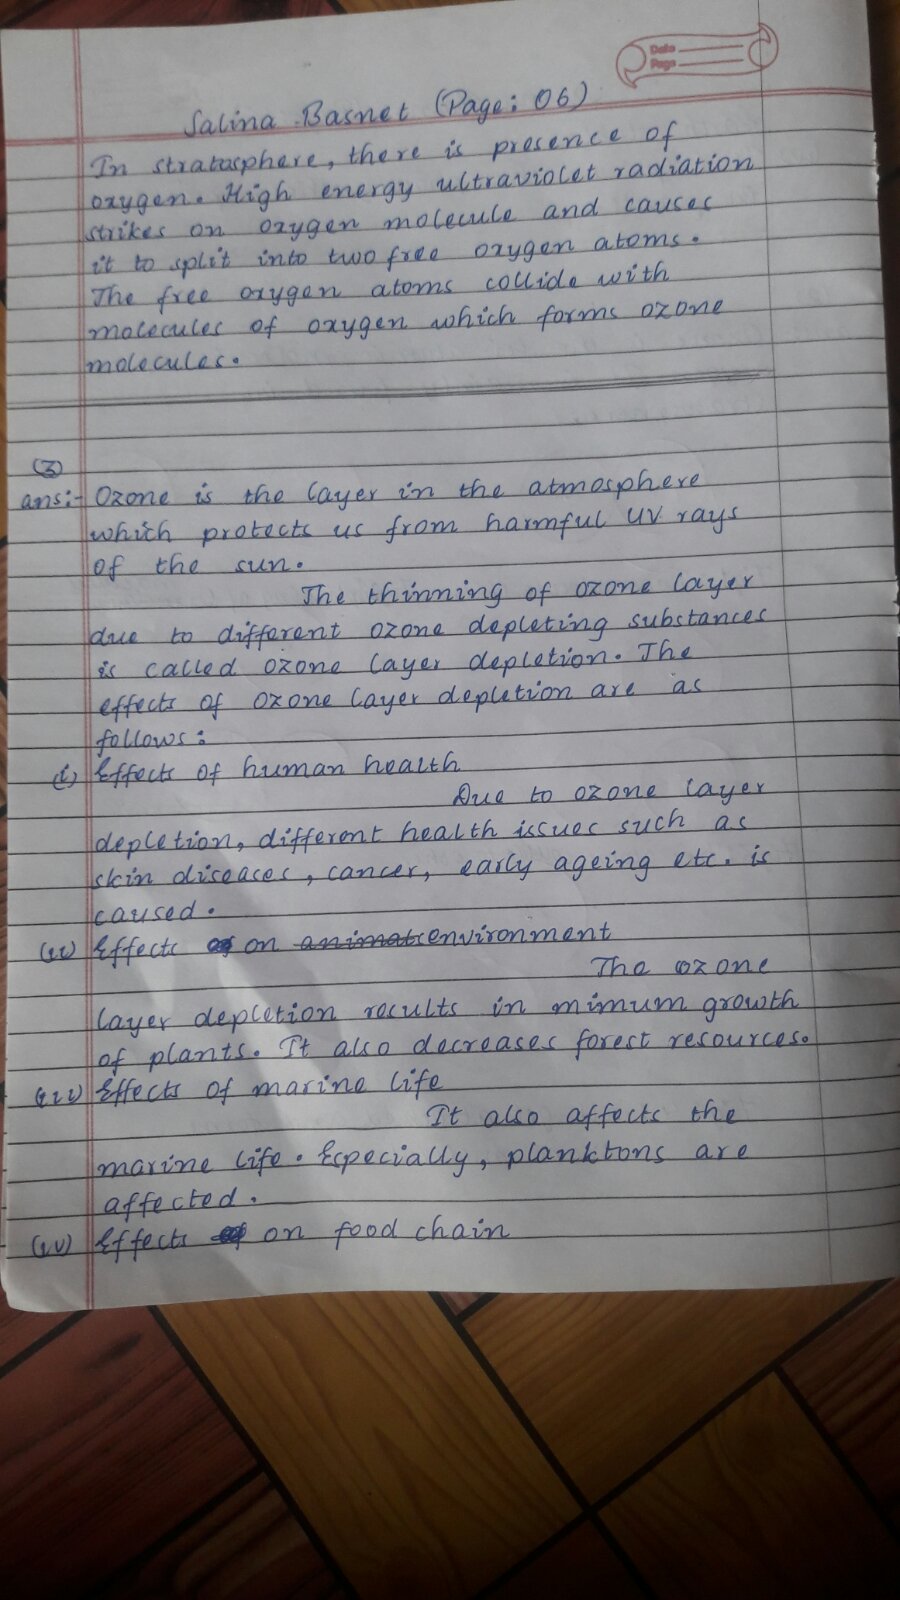 Date
Page
Salina Basnet (Page: 06)
In stratosphere, there is presence of
oxygen. High energy ultraviolet radiation
strikes on oxygen molecule and causes
it to split into two free oxygen atoms.
The free oxygen atoms collide with
molecules of oxygen which forms ozone
molecules.
(3)
ans:- Ozone is the layer in the atmosphere
which protects us from harmful UV rays
of the sun.
The thinning of ozone layer
due to different ozone depleting substances
is called ozone layer depletion. The
effects of ozone layer depletion are as
follows:
(i) Effects of human health
Due to ozone layer
depletion, different health issues such as
skin diseases, cancer, early ageing etc. is
caused.
(ii) Effects of on animals environment
The ozone
layer depletion results in mimum growth
of plants. It also decreases forest resources.
(iii) Effects of marine life
It also affects the
marine life. Especially, planktons are
affected.
(iv) Effects of on food chain